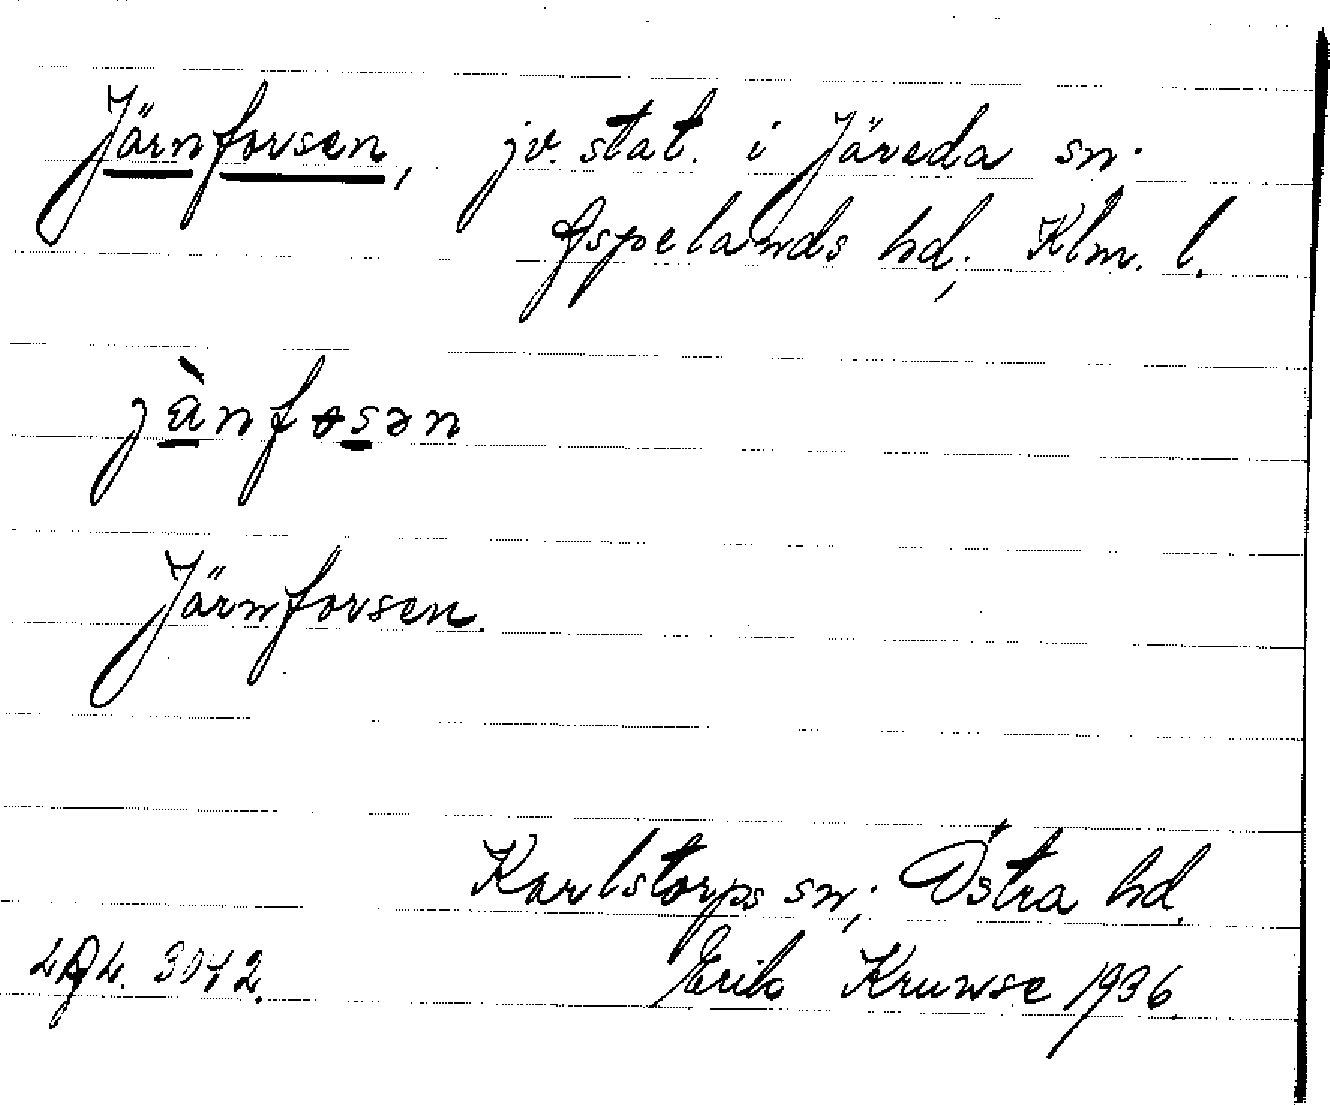 Järnforsen, jv. stat. i Järeda sn.
Aspelands hd., Klm. l.
jä̀nfɵsən
Järnforsen.
Karlstorps sn., Östra hd.
3042. Erik Kruuse 1936.